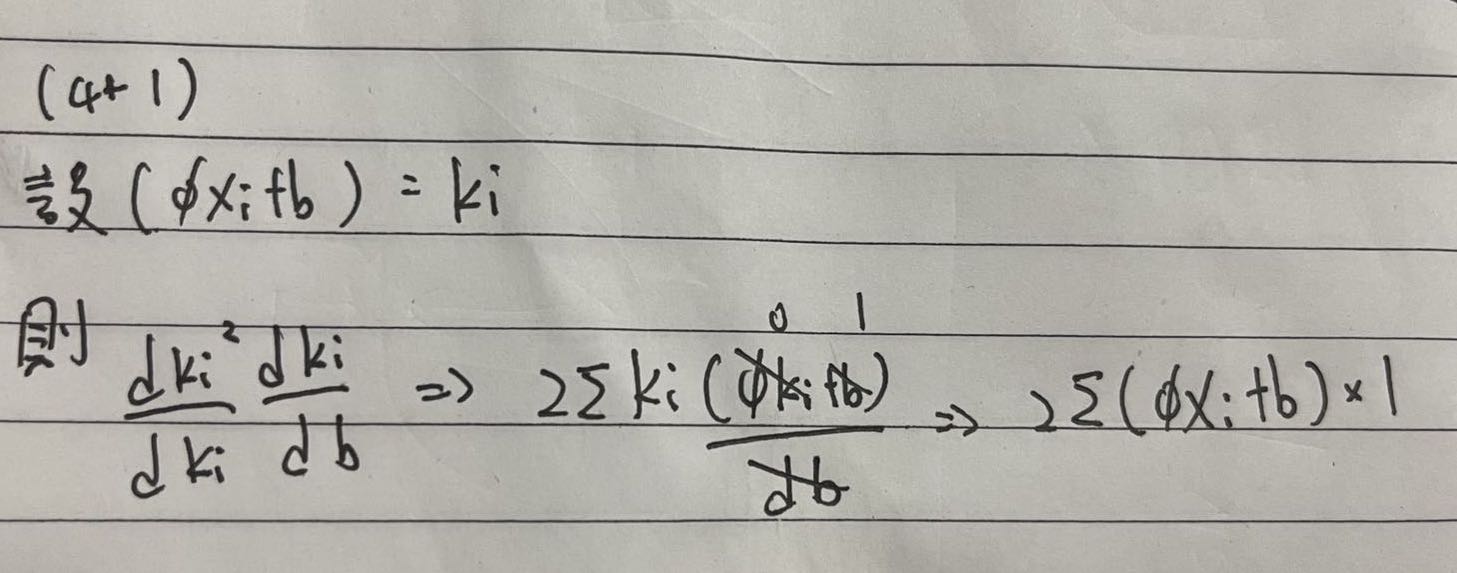 (4+1)
設 (ϕxi+b) = ki
則 dki²/dki dki/db => 2Σ ki (ϕki+b)/db => 2Σ(ϕxi+b)×1
0 1